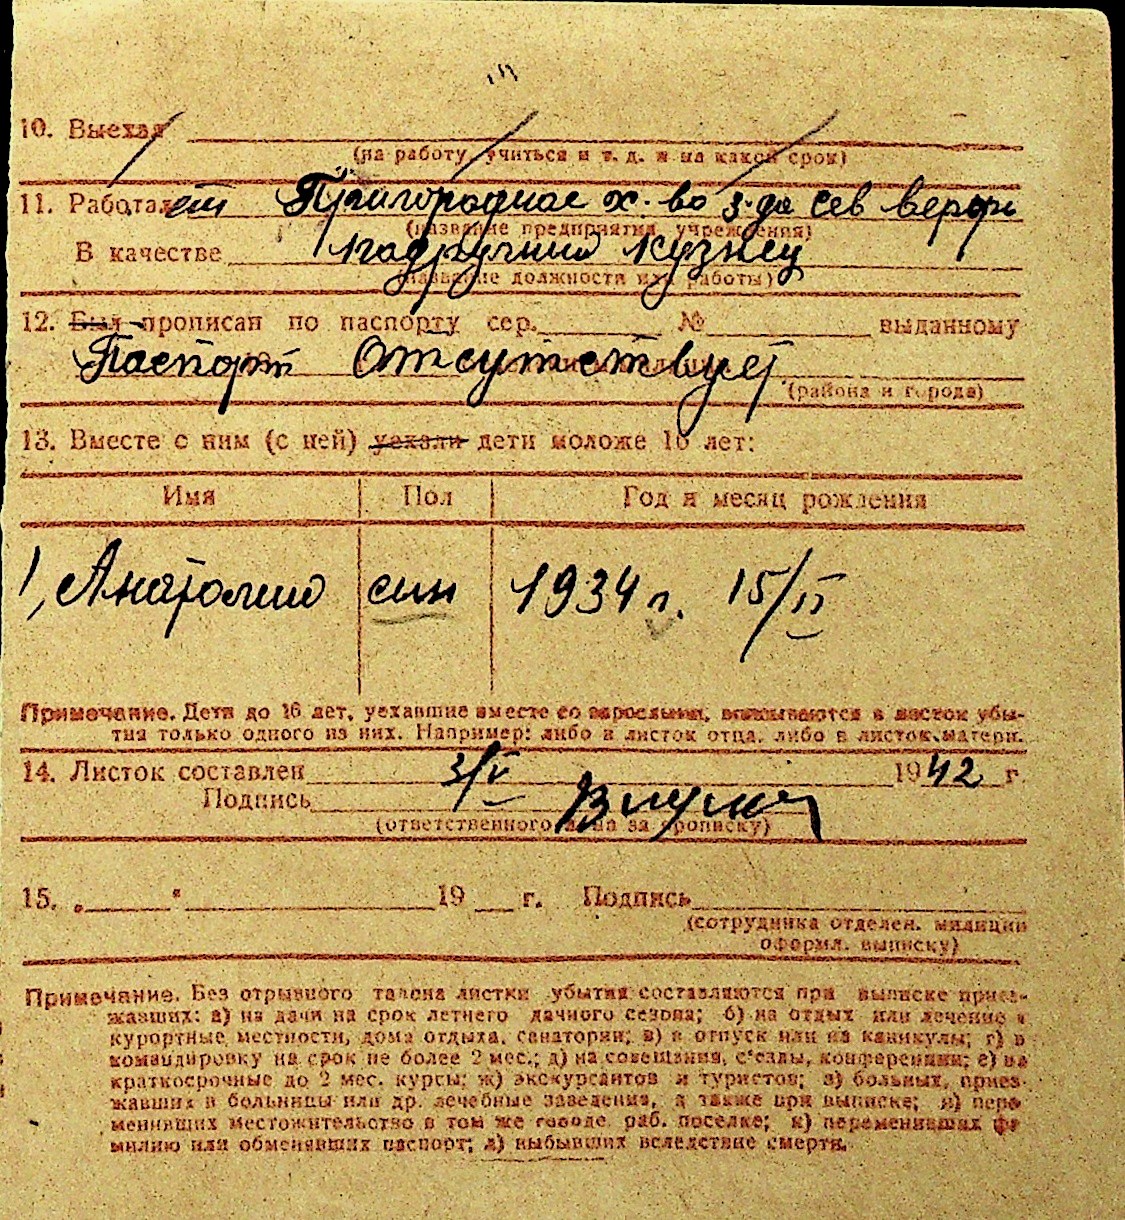 10. Выехал
(на работу, учиться и т. д. и на какой срок)
11. Работает Пригородное х-во з-да Сев верфь
(название предприятия, учреждения)
В качестве подручный кузнец
(название должности или работы)
12. Был прописан по паспорту сер. № выданному
Паспорт Отсутствует
(района и города)
13. Вместе с ним (с ней) уехали дети моложе 16 лет:
Имя Пол Год и месяц рождения
1, Анатолий син 1934 г. 15/II
Примечание. Дети до 16 лет, уехавшие вместе со взрослыми, вписываются в листок убы-
тия только одного из них. Например: либо в листок отца, либо в листок матери.
14. Листок составлен 3/V 1942 г.
Подпись
(ответственного лица за прописку)
15. „ " 19 г. Подпись
(сотрудника отделен. милиции
оформл. выписку)
Примечание. Без отрывного талона листки убытия составляются при выписке приез-
жавших: а) на дачи на срок летнего дачного сезона; б) на отдых или лечение в
курортные местности, дома отдыха, санатории; в) в отпуск или на каникулы; г) в
командировку на срок не более 2 мес.; д) на совещания, с'езды, конференции; е) на
краткосрочные до 2 мес. курсы; ж) экскурсантов и туристов; з) больных, приез-
жавших в больницы или др. лечебные заведения, а также при выписке; и) пере-
менивших местожительство в том же городе, раб. поселке; к) переменивших фа-
милию или обменявших паспорт; л) выбывших вследствие смерти.